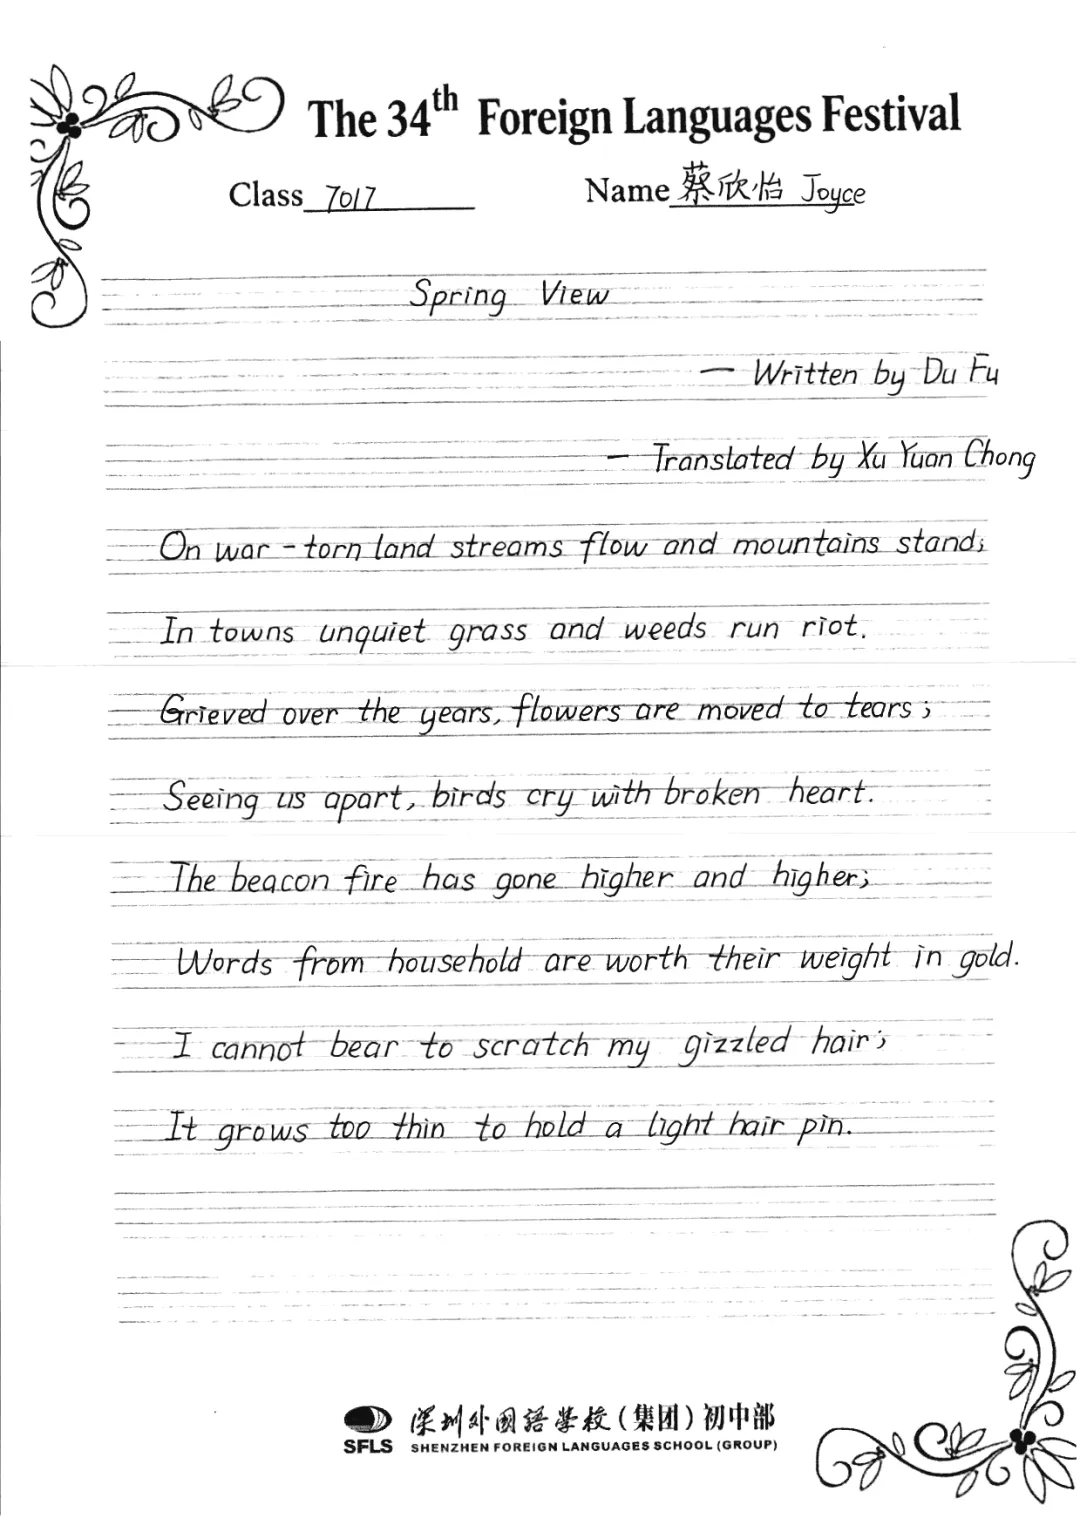 The 34th Foreign Languages Festival
Class 7017 Name 蔡欣怡 Joyce
Spring View
— Written by Du Fu
— Translated by Xu Yuan Chong
On war-torn land streams flow and mountains stand;
In towns unquiet grass and weeds run riot.
Grieved over the years, flowers are moved to tears;
Seeing us apart, birds cry with broken heart.
The beacon fire has gone higher and higher;
Words from household are worth their weight in gold.
I cannot bear to scratch my gizzled hair;
It grows too thin to hold a light hair pin.
深圳外国語学校(集团)初中部
SFLS SHENZHEN FOREIGN LANGUAGES SCHOOL (GROUP)